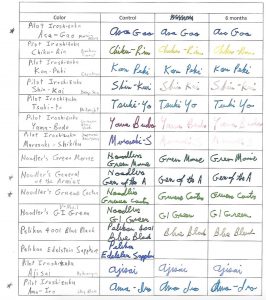 Color Control 6 months
Pilot Iroshizuku
Asa-Gao Asa Gao Asa Gao Asa Gao
Pilot Iroshizuku
Chiku-Rin Chiku-Rin Chiku-Rin Chiku-Rin
Pilot Iroshizuku
Kon-Peki Kon Peki Kon Peki Kon Peki
Pilot Iroshizuku
Shin-Kai Shin-Kai Shin-Kai Shin-Kai
Pilot Iroshizuku
Tsuki-Yo Tsuki-Yo Tsuki Yo
Pilot Iroshizuku
Yama-Budo Yama Budo Yama Budo Yama Budo
Pilot Iroshizuku
Murasaki-Shikibu Murasaki-S
Noodler's Green Marine Noodlers
Green Marine Green Marine Green Marine
Noodler's General
of the Armies Noodlers
Gen of the A Gen of the A Gen of the A
Noodler's Graves Cactus Noodlers
Noodler's GI Green Noodlers
GI Green GI Green GI Green
Pelikan 4001 Blue Black Pelikan 4001
Blue Black Blue Black Blue Black
Pelikan Edelstein Sapphire Pelikan
Edelstein Sapphire
Pilot Iroshizuku
Ajisai Ajisai Ajisai Ajisai
Pilot Iroshizuku
Ama-Iro Ama-Iro Ama-Iro Ama-Iro